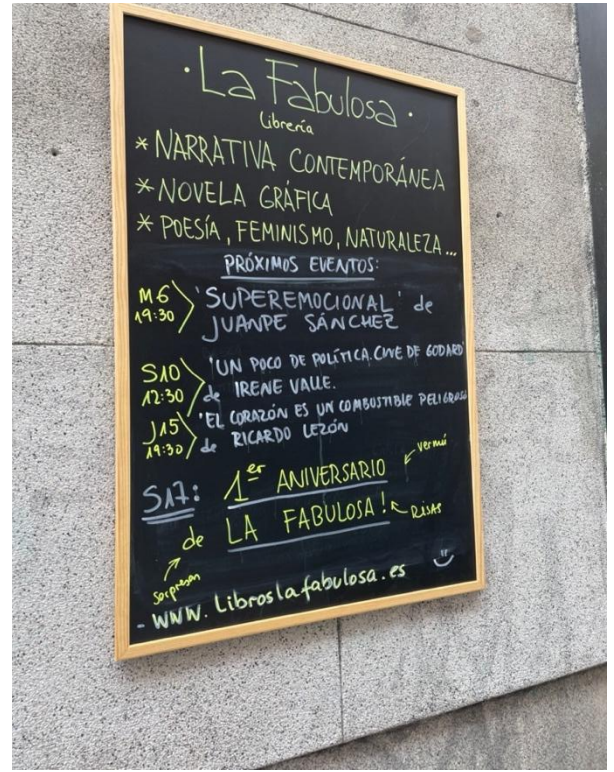 · La Fabulosa ·
Librería
* NARRATIVA CONTEMPORÁNEA
* NOVELA GRÁFICA
* POESÍA, FEMINISMO, NATURALEZA...
PRÓXIMOS EVENTOS:
M6 19:30 'SUPEREMOCIONAL' de
JUANPE SÁNCHEZ
S10 12:30 'UN POCO DE POLÍTICA. CINE DE GODARD'
de IRENE VALLE.
J15 19:30 'EL CORAZÓN ES UN COMBUSTIBLE PELIGROSO'
de RICARDO LEZÓN
S17: 1er ANIVERSARIO
vermú
de LA FABULOSA!
RISAS
sorpresas
- WWW.Libroslafabulosa.es